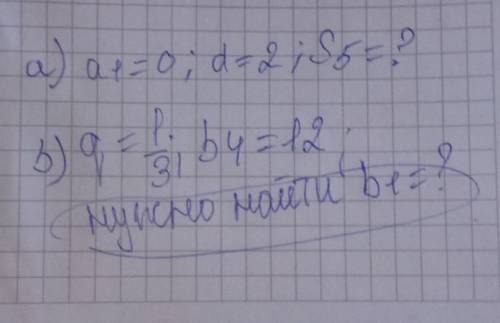 a) a1=0; d=2; S5=?
b) q=1/3; b4=12;
нужно найти b1=?